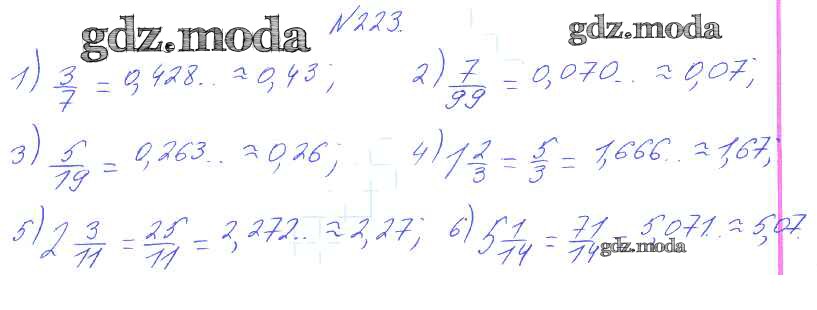 gdz.moda №223. gdz.moda
1) 3/7 = 0,428.. ≈ 0,43; 2) 7/99 = 0,070.. ≈ 0,07;
3) 5/19 = 0,263.. ≈ 0,26; 4) 1 2/3 = 5/3 = 1,666.. ≈ 1,67;
5) 2 3/11 = 25/11 = 2,272.. ≈ 2,27; 6) 5 1/14 = 71/14 = 5,071.. ≈ 5,07.
gdz.moda